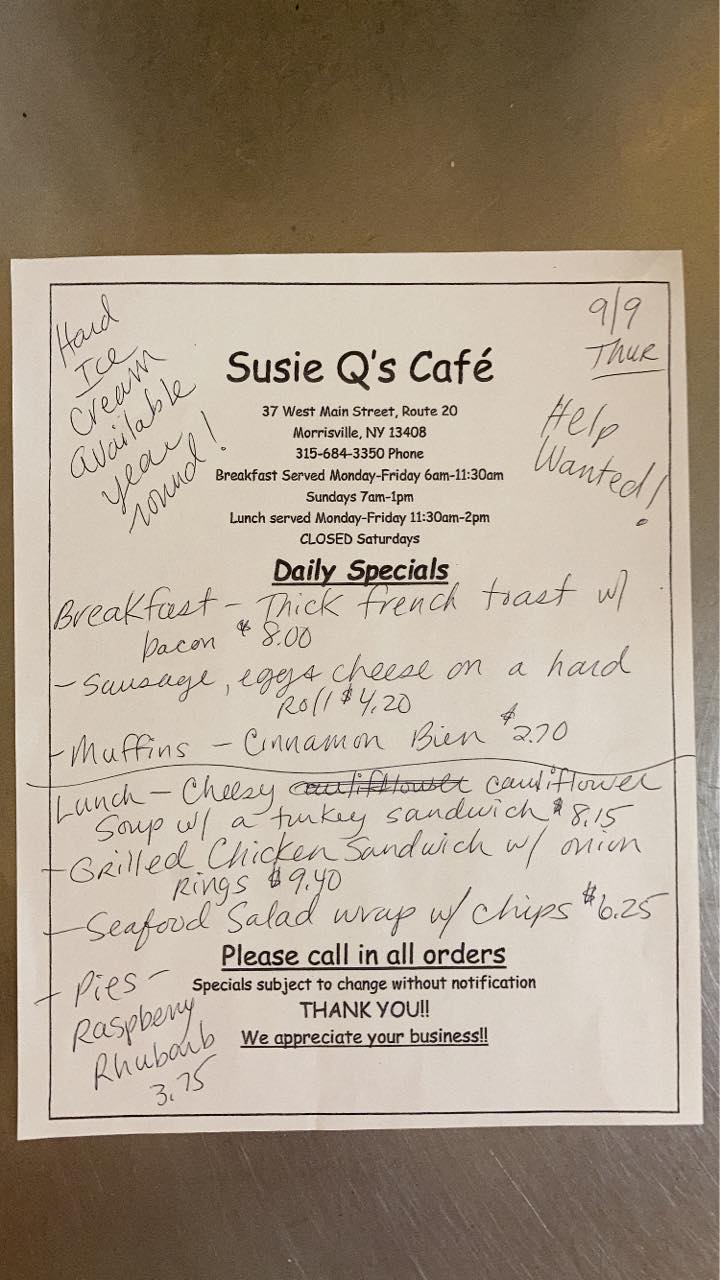 Hard
Ice
Cream
available
year
round!
9/9
Thur
Help
Wanted!
Susie Q's Café
37 West Main Street, Route 20
Morrisville, NY 13408
315-684-3350 Phone
Breakfast Served Monday-Friday 6am-11:30am
Sundays 7am-1pm
Lunch served Monday-Friday 11:30am-2pm
CLOSED Saturdays
Daily Specials
Breakfast - Thick french toast w/
bacon $8.00
- Sausage, eggs cheese on a hard
Roll $4.20
- Muffins - Cinnamon Bien $2.70
Lunch - Cheesy cauliflower cauliflower
Soup w/ a turkey sandwich $8.15
- Grilled Chicken Sandwich w/ onion
Rings $9.40
- Seafood Salad wrap w/ chips $6.25
Please call in all orders
Specials subject to change without notification
THANK YOU!!
We appreciate your business!!
- Pies -
Raspberry
Rhubarb
3.75